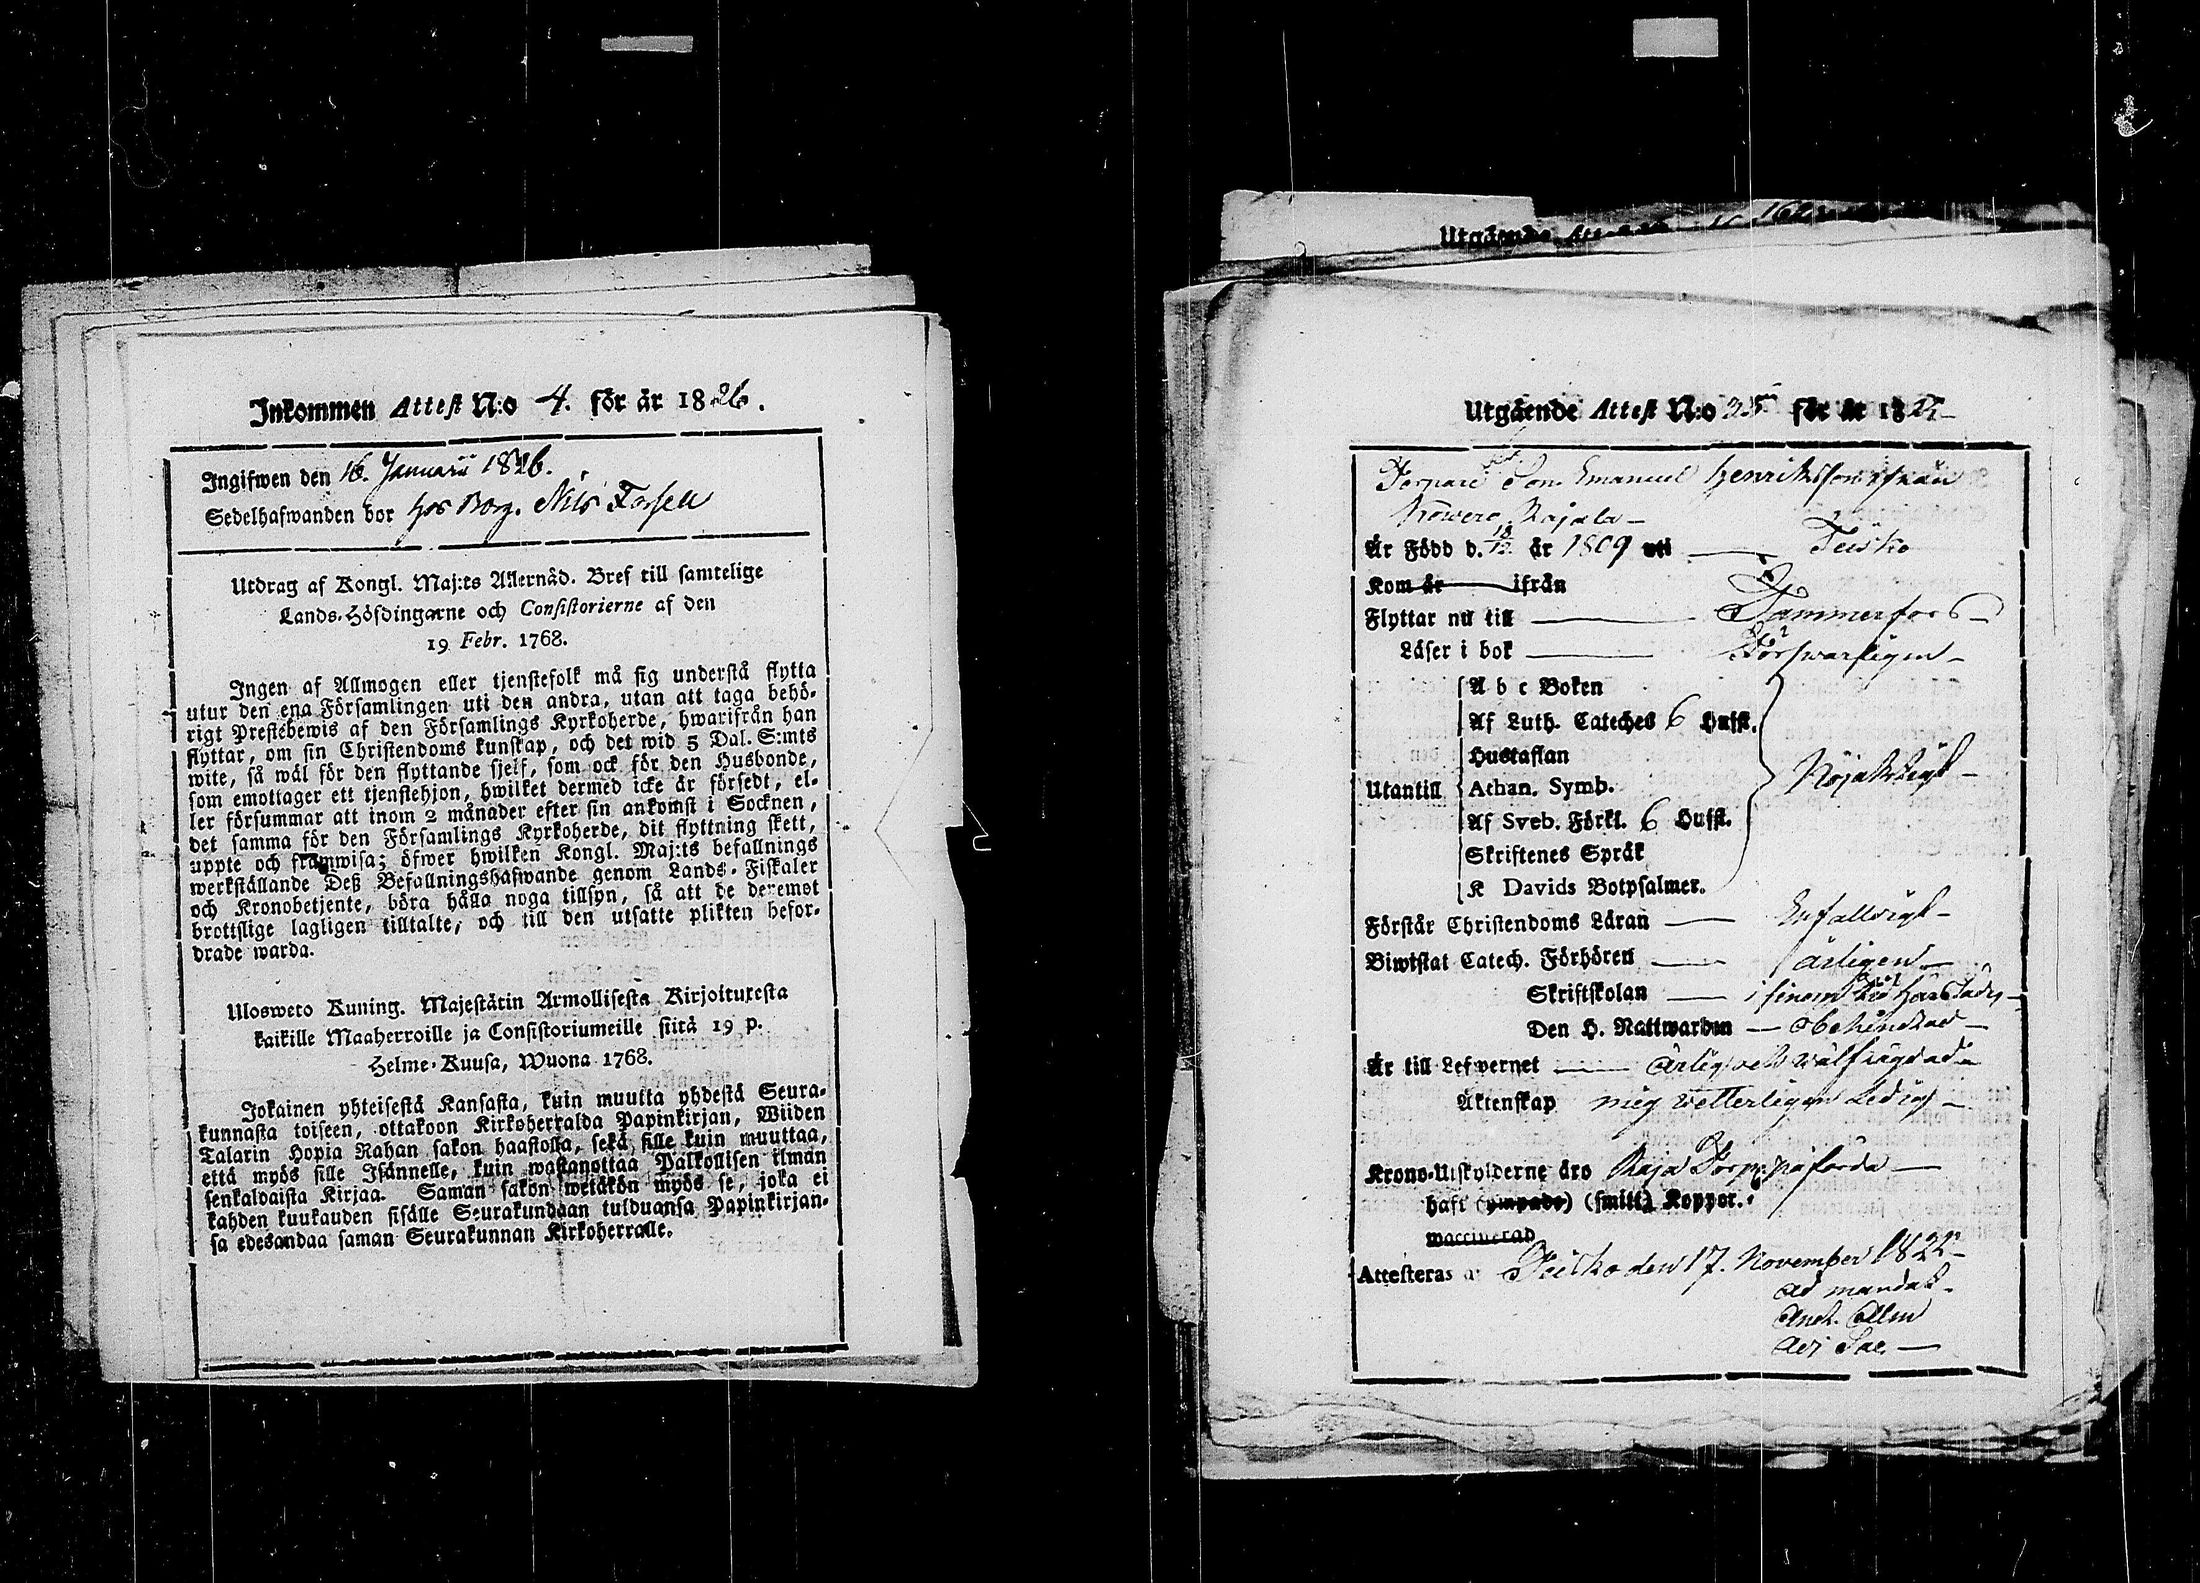 Inkommen Attest N:o 4. för år 1826.
Ingifwen den 16. Januarii 1826.
Sedelhafwanden bor hos Borg. Nils Forsell
Utdrag af Kongl. Maj:ts Allernåd. Bref till samtelige
Lands-Höfdingarne och Consistorierne af den
19 Febr. 1768.
Ingen af Allmogen eller tjenstefolk må sig understå flytta
utur den ena Församlingen uti den andra, utan att taga behö-
rigt Prestebewis af den Församlings Kyrkoherde, hwarifrån han
flyttar, om sin Christendoms kunskap, och det wid 5 Dal. S:mts
wite, så wäl för den flyttande sjelf, som ock för den Husbonde,
som emottager ett tjenstehjon, hwilket dermed icke är försedt, el-
ler försummar att inom 2 månader efter sin ankomst i Socknen,
det samma för den Församlings Kyrkoherde, dit flyttning skett,
uppte och framwisa; öfwer hwilken Kongl. Maj:ts befallnings
werkställande Deß Befallningshafwande genom Lands-Fiskaler
och Kronobetjente, böra hålla noga tillsyn, så att de deremot
brottslige lagligen tilltalte, och till den utsatte plikten befor-
drade warda.
Ulosweto Kuning. Majestätin Armollisesta Kirjoituxesta
kaikille Maaherroille ja Consistoriumeille siitä 19 p.
Helme-Kuusa, Wuona 1768.
Jokainen yhteisestä Kansasta, kuin muutta yhdestä Seura-
kunnasta toiseen, ottakoon Kirkoherralda Papinkirjan, Wiiden
Talarin Hopia Rahan sakon haastolla, sekä sille kuin muuttaa,
että myös sille Isännelle, kuin wastanottaa Palkollisen ilman
senkaldaista Kirjaa. Saman sakon wetäkön myös se, joka ei
kahden kuukauden sisälle Seurakundaan tulduansa Papinkirjan-
sa edesandaa saman Seurakunnan Kirkoherralle.
Utgående
Utgående Attest N:o för år 18
Torpare Son Emanuel Henriksson ifrån
Rajala
Är Född d. 18/12 år 1809 uti Teisko
Kom år ifrån
Flyttar nu till Tammerfors
Läser i bok förswarligen
A b c Boken
Af Luth. Cateches 6 Hufst.
Hustaflan
Utantill Athan. Symb. Nöjaktigt
Af Sveb. Förkl. 6 Hufst.
Skriftenes Språk
K Davids Botpsalmer.
Förstår Christendoms Läran Enfalldigt
Biwistat Catech. Förhören årligen
Skriftskolan i sinom tid
Den H. Nattwarden obehindrad
Är till Lefvernet ärlig och wälfrägdad
Äktenskap mig wetterligen Ledig
Krono-Utskylderne äro Raja Torp påförda
haft (ympade) (smitt) Koppor.
waccinerad
Attesteras af Teisko den 17. November 1822
ad mandat.